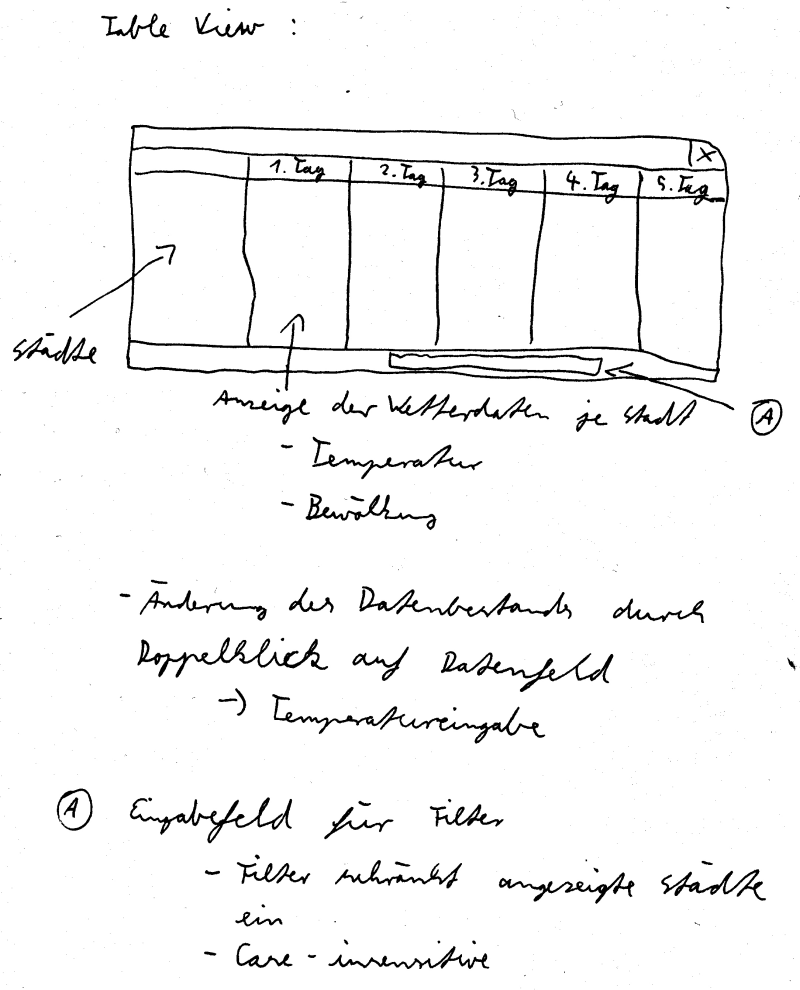 Table View :
X
1. Tag 2. Tag 3. Tag 4. Tag 5. Tag
Städte
Anzeige der Wetterdaten je Stadt
A
- Temperatur
- Bewölkung
- Änderung des Datenbestands durch
Doppelklick auf Datenfeld
-> Temperatureingabe
A Eingabefeld für Filter
- Filter schränkt angezeigte Städte
ein
- Case-insensitive